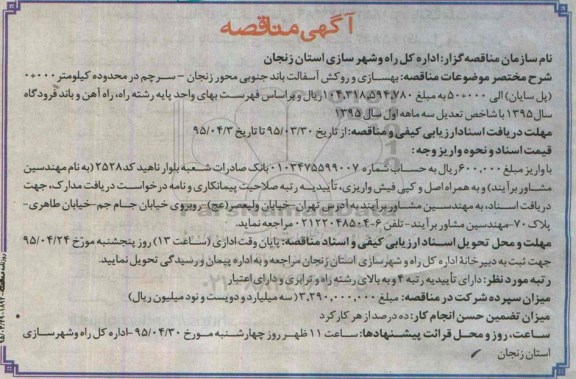 آگهی مناقصه
نام سازمان مناقصه گزار: اداره کل راه وشهر سازی استان زنجان
شرح مختصر موضوعات مناقصه: بهسازی و روکش آسفالت باند جنوبی محور زنجان – سرچم در محدوده کیلومتر ۰+۰۰۰
(پل سایان) الی ۵۰۰+۰۰ به مبلغ ۱۰۴,۳۱۸,۵۹۴,۷۸۰ ریال و براساس فهرست بهای واحد پایه رشته راه، راه آهن و باند فرودگاه
سال ۱۳۹۵ با شاخص تعدیل سه ماهه اول سال ۱۳۹۵
مهلت دریافت اسناد ارزیابی کیفی و مناقصه: از تاریخ ۹۵/۰۳/۳۰ تا تاریخ ۹۵/۰۴/۳
قیمت اسناد و نحوه واریز وجه:
با واریز مبلغ ۶۰۰,۰۰۰ ریال به حساب شماره ۰۱۰۳۴۷۵۵۹۹۰۰۷ بانک صادرات شعبه بلوار ناهید کد ۲۵۲۸ (به نام مهندسین
مشاور برآیند) و به همراه اصل و کپی فیش واریزی، تأییدیه رتبه صلاحیت پیمانکاری و نامه درخواست دریافت مدارک، جهت
دریافت اسناد، به مهندسین مشاور برآیند به آدرس تهران - خیابان ولیعصر (عج) - روبروی خیابان جام جم - خیابان طاهری -
پلاک ۷۰ - مهندسین مشاور برآیند - تلفن ۶-۰۲۱۲۲۰۴۸۵۰۴ مراجعه نماید.
مهلت و محل تحویل اسناد ارزیابی کیفی و اسناد مناقصه: پایان وقت اداری (ساعت ۱۳) روز پنجشنبه مورخ ۹۵/۰۴/۲۴
جهت ثبت به دبیرخانه اداره کل راه و شهرسازی استان زنجان مراجعه و به اداره پیمان و رسیدگی تحویل نمایید.
رتبه مورد نظر: دارای تأییدیه رتبه ۴ و به بالای رشته راه و ترابری و دارای اعتبار
میزان سپرده شرکت در مناقصه: مبلغ ۳,۲۹۰,۰۰۰,۰۰۰ (سه میلیارد و دویست و نود میلیون ریال)
میزان تضمین حسن انجام کار: ده درصد از هر کارکرد
ساعت، روز و محل قرائت پیشنهادها: ساعت ۱۱ ظهر روز چهارشنبه مورخ ۹۵/۰۴/۳۰ - اداره کل راه وشهرسازی
استان زنجان